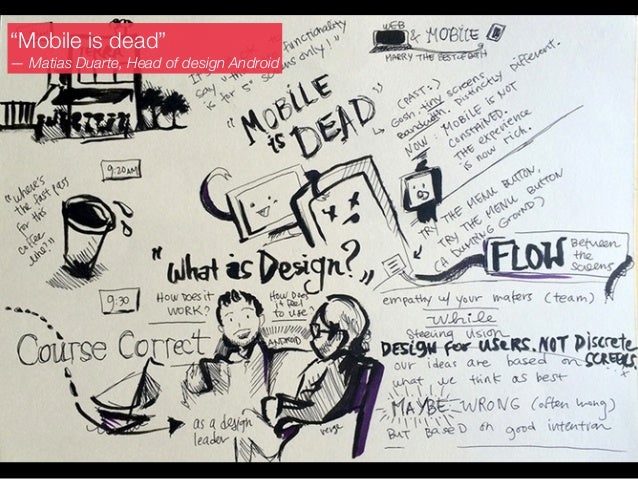 “Mobile is dead”
— Matias Duarte, Head of design Android
functionality
say
is for 5" screens only!"
WEB
& MOBILE
MARRY THE BEST OF BOTH
"MOBILE
is DEAD"
(PAST:)
Gosh, tiny screens
Bandwidth. Distinctly different.
NOW: MOBILE is NOT
CONSTAINED.
THE experience
is now rich.
9:20AM
"where's
the fast pass
for this
coffee
line?"
TRY THE MENU BUTTON,
TRY THE MENU BUTTON
(A DUMPING GROUND)
FLOW
Between
the
screens
"What is Design?"
9:30
HOW DOES it
WORK?
How Does
it feel
to use
ANDROID
empathy w/ your makers (team)
While
Steering vision
DESIGN FOR USERS, NOT Discrete
SCREENS.
our ideas are based on
what we think as best
MAYBE WRONG (often wrong)
BUT BASED on good intention
Course Correct
as a design
leader
verge